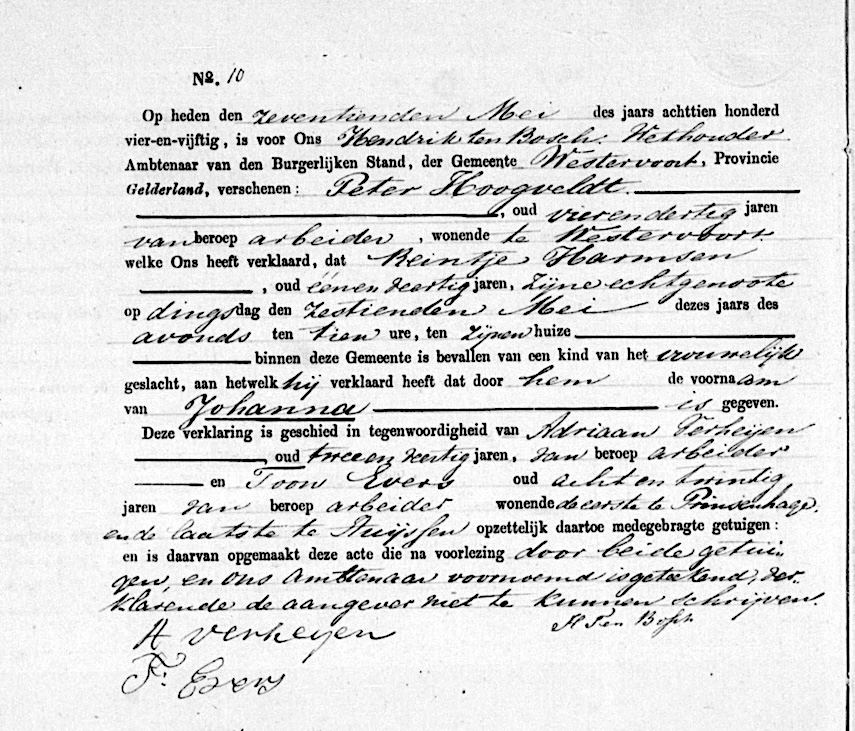 No. 10
Op heden den zeventienden Mei des jaars achttien honderd
vier-en-vijftig, is voor Ons Hendrik ten Bosch. Wethouder
Ambtenaar van den Burgerlijken Stand, der Gemeente Westervoort, Provincie
Gelderland, verschenen: Peter Hoogveldt
, oud vierendertig jaren
van beroep arbeider, wonende te Westervoort.
welke Ons heeft verklaard, dat Reintje Harmsen
, oud éénendertig jaren, zijne echtgenoote
op dingsdag den zestienden Mei dezes jaars des
avonds ten tien ure, ten zijnen huize
binnen deze Gemeente is bevallen van een kind van het vrouwelijk
geslacht, aan hetwelk hij verklaard heeft dat door hem de voornaam
van Johanna is gegeven.
Deze verklaring is geschied in tegenwoordigheid van Adriaan Verheijen
, oud tweeendertig jaren, van beroep arbeider
en Toon Evers oud achtentwintig
jaren van beroep arbeider wonende de eerste te Prinsenhage.
en de laatste te Huijssen opzettelijk daartoe medegebragte getuigen:
en is daarvan opgemaakt deze acte die na voorlezing door beide getui-
gen, en ons Ambtenaar voornoemd is geteekend, ver
klarende de aangever niet te kunnen schrijven.
H Ten Bosch
A Verheyen
T: Evers